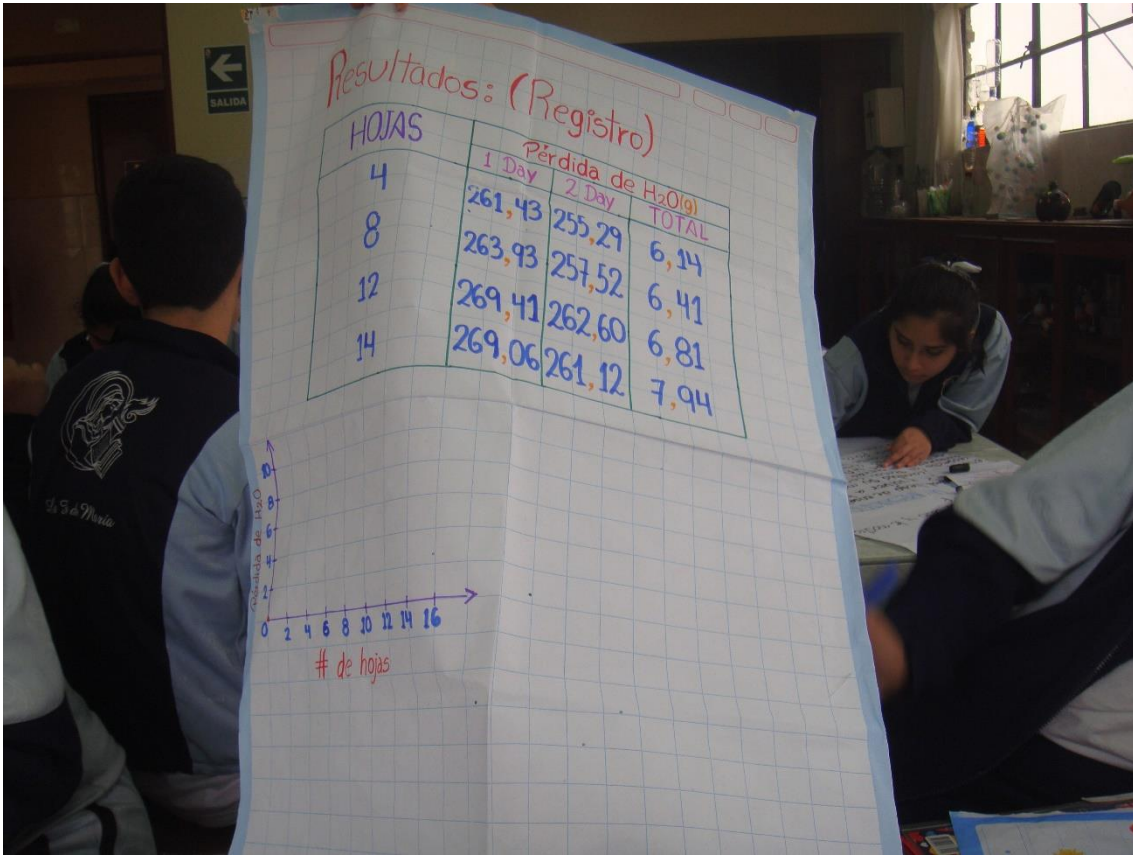 SALIDA
Resultados: (Registro)
HOJAS
Pérdida de H2O(g)
1 Day 2 Day TOTAL
4 261,43 255,29 6,14
8 263,93 257,52 6,41
12 269,41 262,60 6,81
14 269,06 261,12 7,94
Pérdida de H2O
10
8
6
4
2
0 2 4 6 8 10 12 14 16
# de hojas